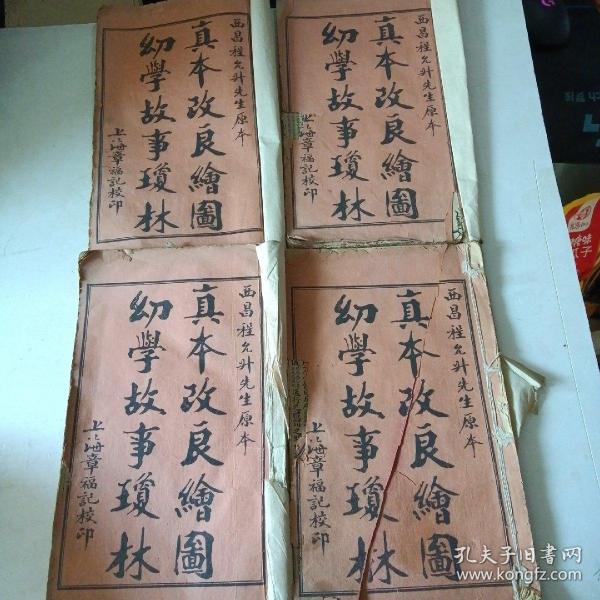 西昌程允升先生原本
真本改良繪圖
幼學故事瓊林
上海章福記校印
西昌程允升先生原本
真本改良繪圖
幼學故事瓊林
上海章福記校印
西昌程允升先生原本
真本改良繪圖
幼學故事瓊林
上海章福記校印
西昌程允升先生原本
真本改良繪圖
幼學故事瓊林
上海章福記校印
孔夫子旧书网
www.kongfz.com